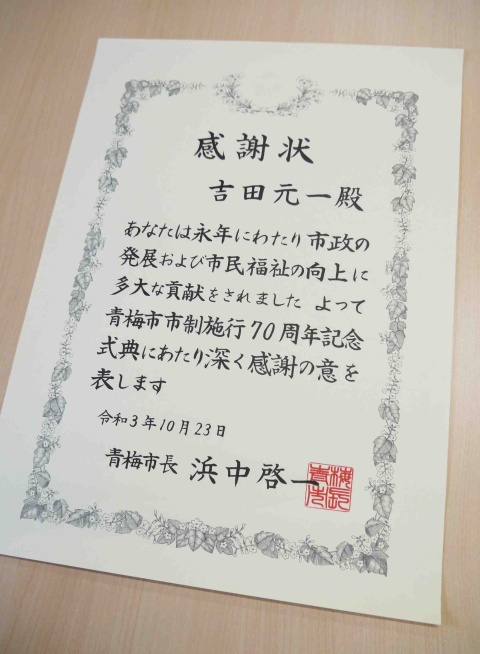 感謝状
吉田元一殿
あなたは永年にわたり市政の
発展および市民福祉の向上に
多大な貢献をされました よって
青梅市市制施行70周年記念
式典にあたり深く感謝の意を
表します
令和3年10月23日
青梅市長 浜中啓一
青梅市長